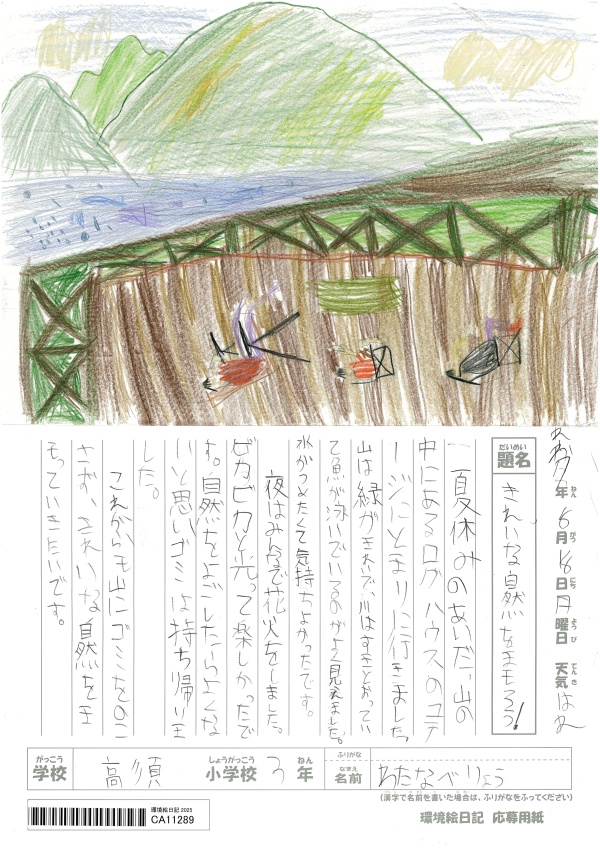 だいめい
題名
きれいな自然をまもろう!
年 6月 16日 月曜日 天気 はれ
ねん がつ にち ようび てんき
一夏休みのあいだ、山の
中にあるログハウスのコテ
ージにとまりに行きました。
山は緑がきれいで、川はすきとがってい
て魚が泳いでいるのがよく見えました。
水がつめたくて気持ちよかったです。
夜はみんなで花火をしました。
ピカピカと光って楽しかったで
す。自然をよごしたらよくな
いと思いゴミは持ち帰りま
した。
これからも山にゴミをのこ
さず、きれいな自然をま
もっていきたいです。
がっこう しょうがっこう ねん ふりがな
学校 高須 小学校 3年 名前 わたなべりょう
なまえ
(漢字で名前を書いた場合は、ふりがなをふってください)
環境絵日記 2025
CA11289
環境絵日記 応募用紙